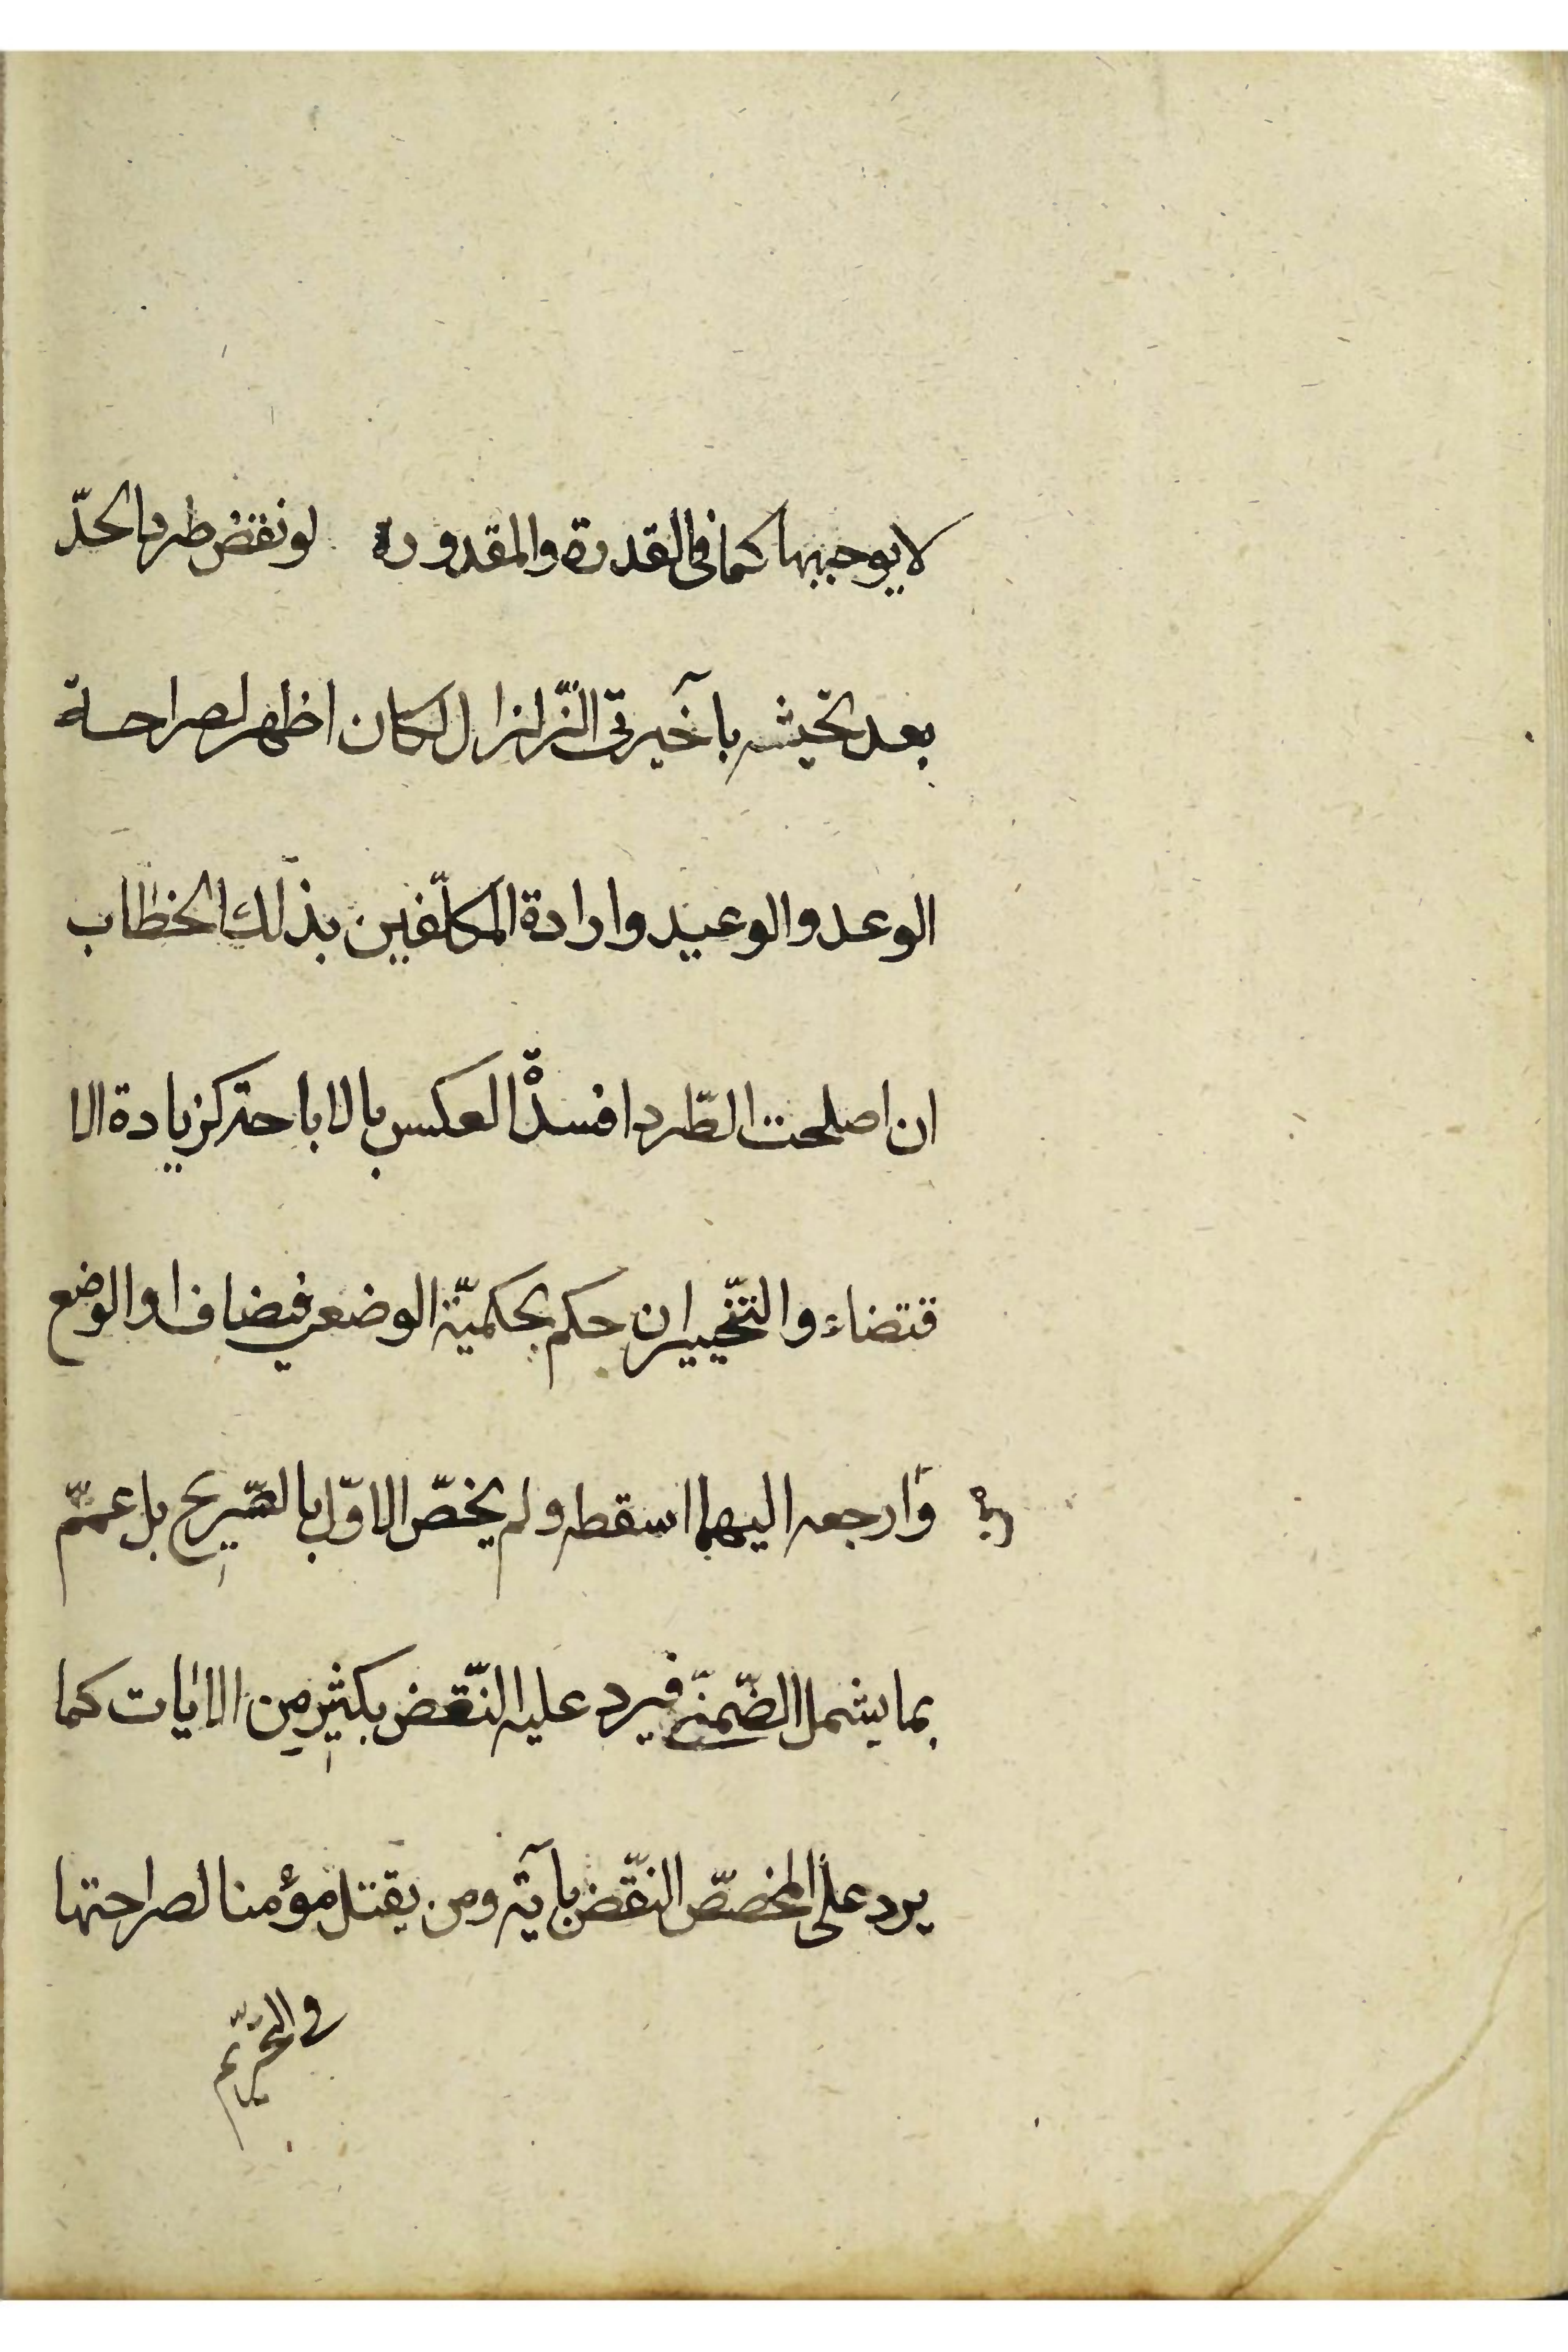 لا يوجبها كما في القدرة والمقدورة لو نقض طرد الحدّ
بعد تحيثه بآخيرتي الزّلزال لكان اظهر لصراحة
الوعد والوعيد وارادة المكلّفين بذلك الخطاب
ان اصلحت الطّرد افسدْة العكس بالاباحة كزيادة الا
قتضاء والتّخيير ان حكم بحكميّة الوضعي فيضاف او الوضع
وَارجعه اليهما اسقطه ولم يخصّ الاوّل بالصّريح بل عمّم
بما يشمل الضّمنّي فيرد عليه النّقض بكثيرٍ مِن الايات كما
يرد على المخصّص النّقض بآية ومن يقتل مؤمنا لصراحتها
في التّحريم